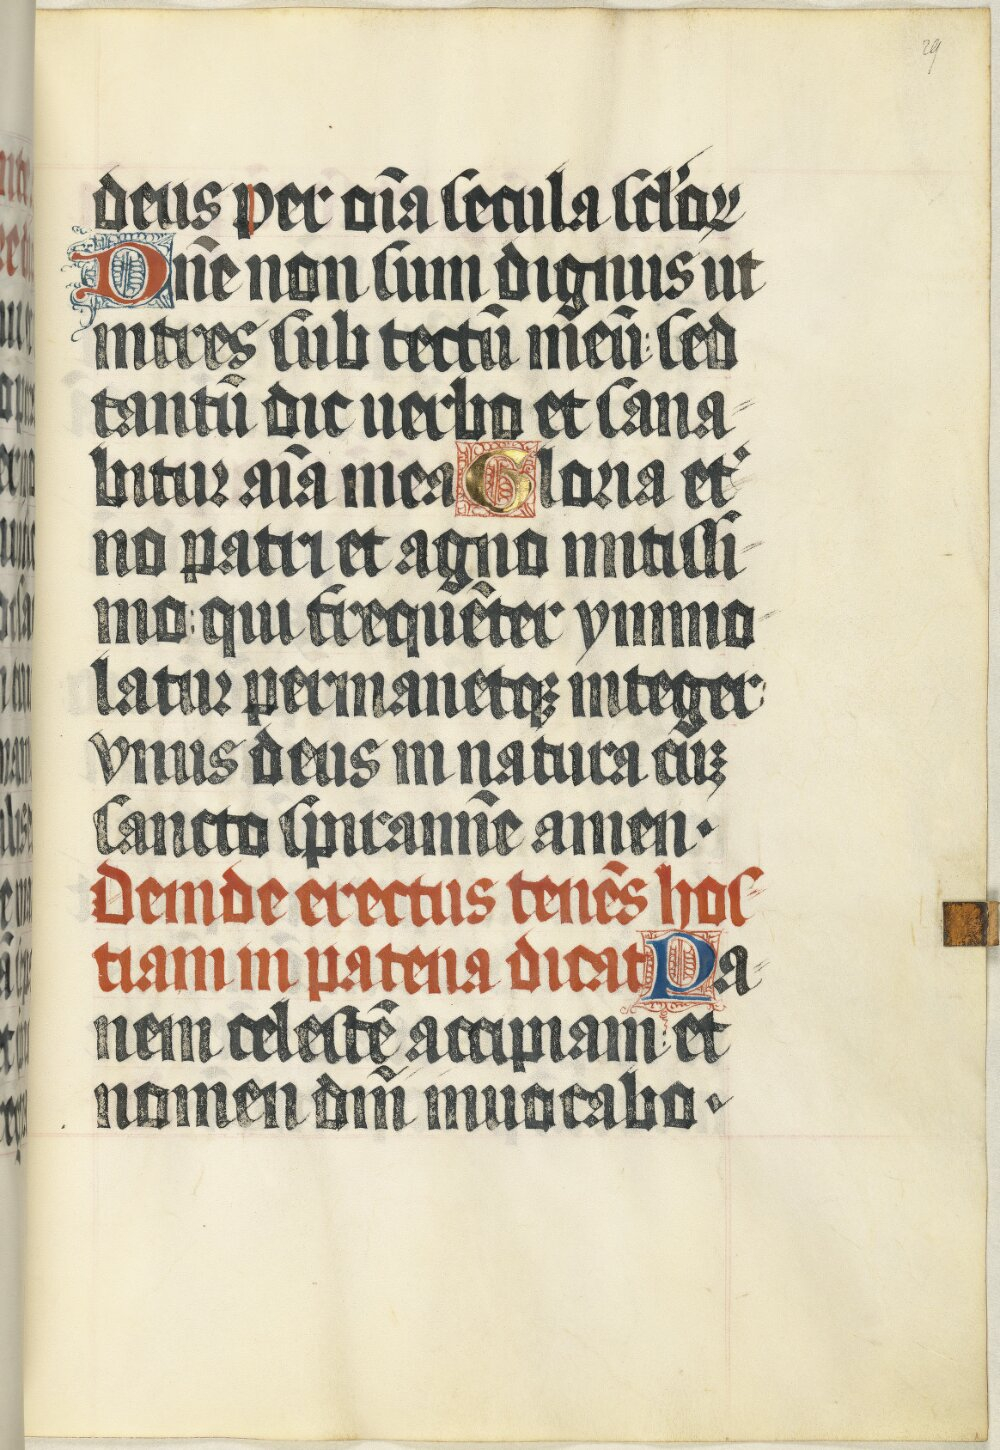 29
deus per oīa secula scl'oꝝ
Dn̄e non sum dignus ut
intres sub tectū meū: sed
tantū dic uerbo et sana-
bitur aīa mea Gloria et'
no patri et agno mitissi-
mo: qui frequēter ymno
latur permanetqꝫ integer:
vnus deus in natura cuꝫ
sancto spiramīe amen.
Deinde erectus tenēs hos-
tiam in patena dicat Pa-
nem celestē accipiam: et
nomen dm̄i inuocabo.